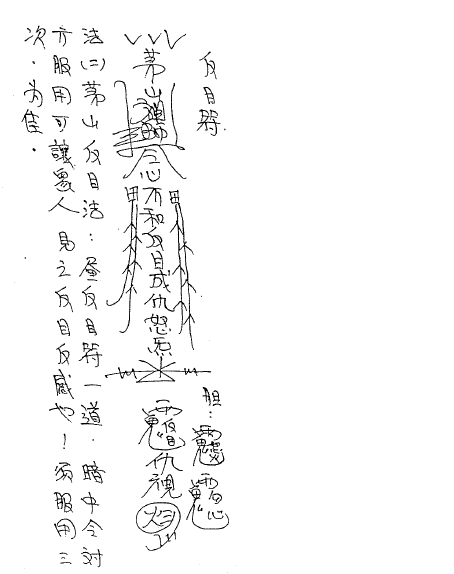 反目符.
胆:
茅山
令心不和反目成仇怒炁
仇視
法(二)茅山反目法:晝反目符一道.暗中令対
方服用可讓眾人見之反目反感也!須服用三
次.為佳.